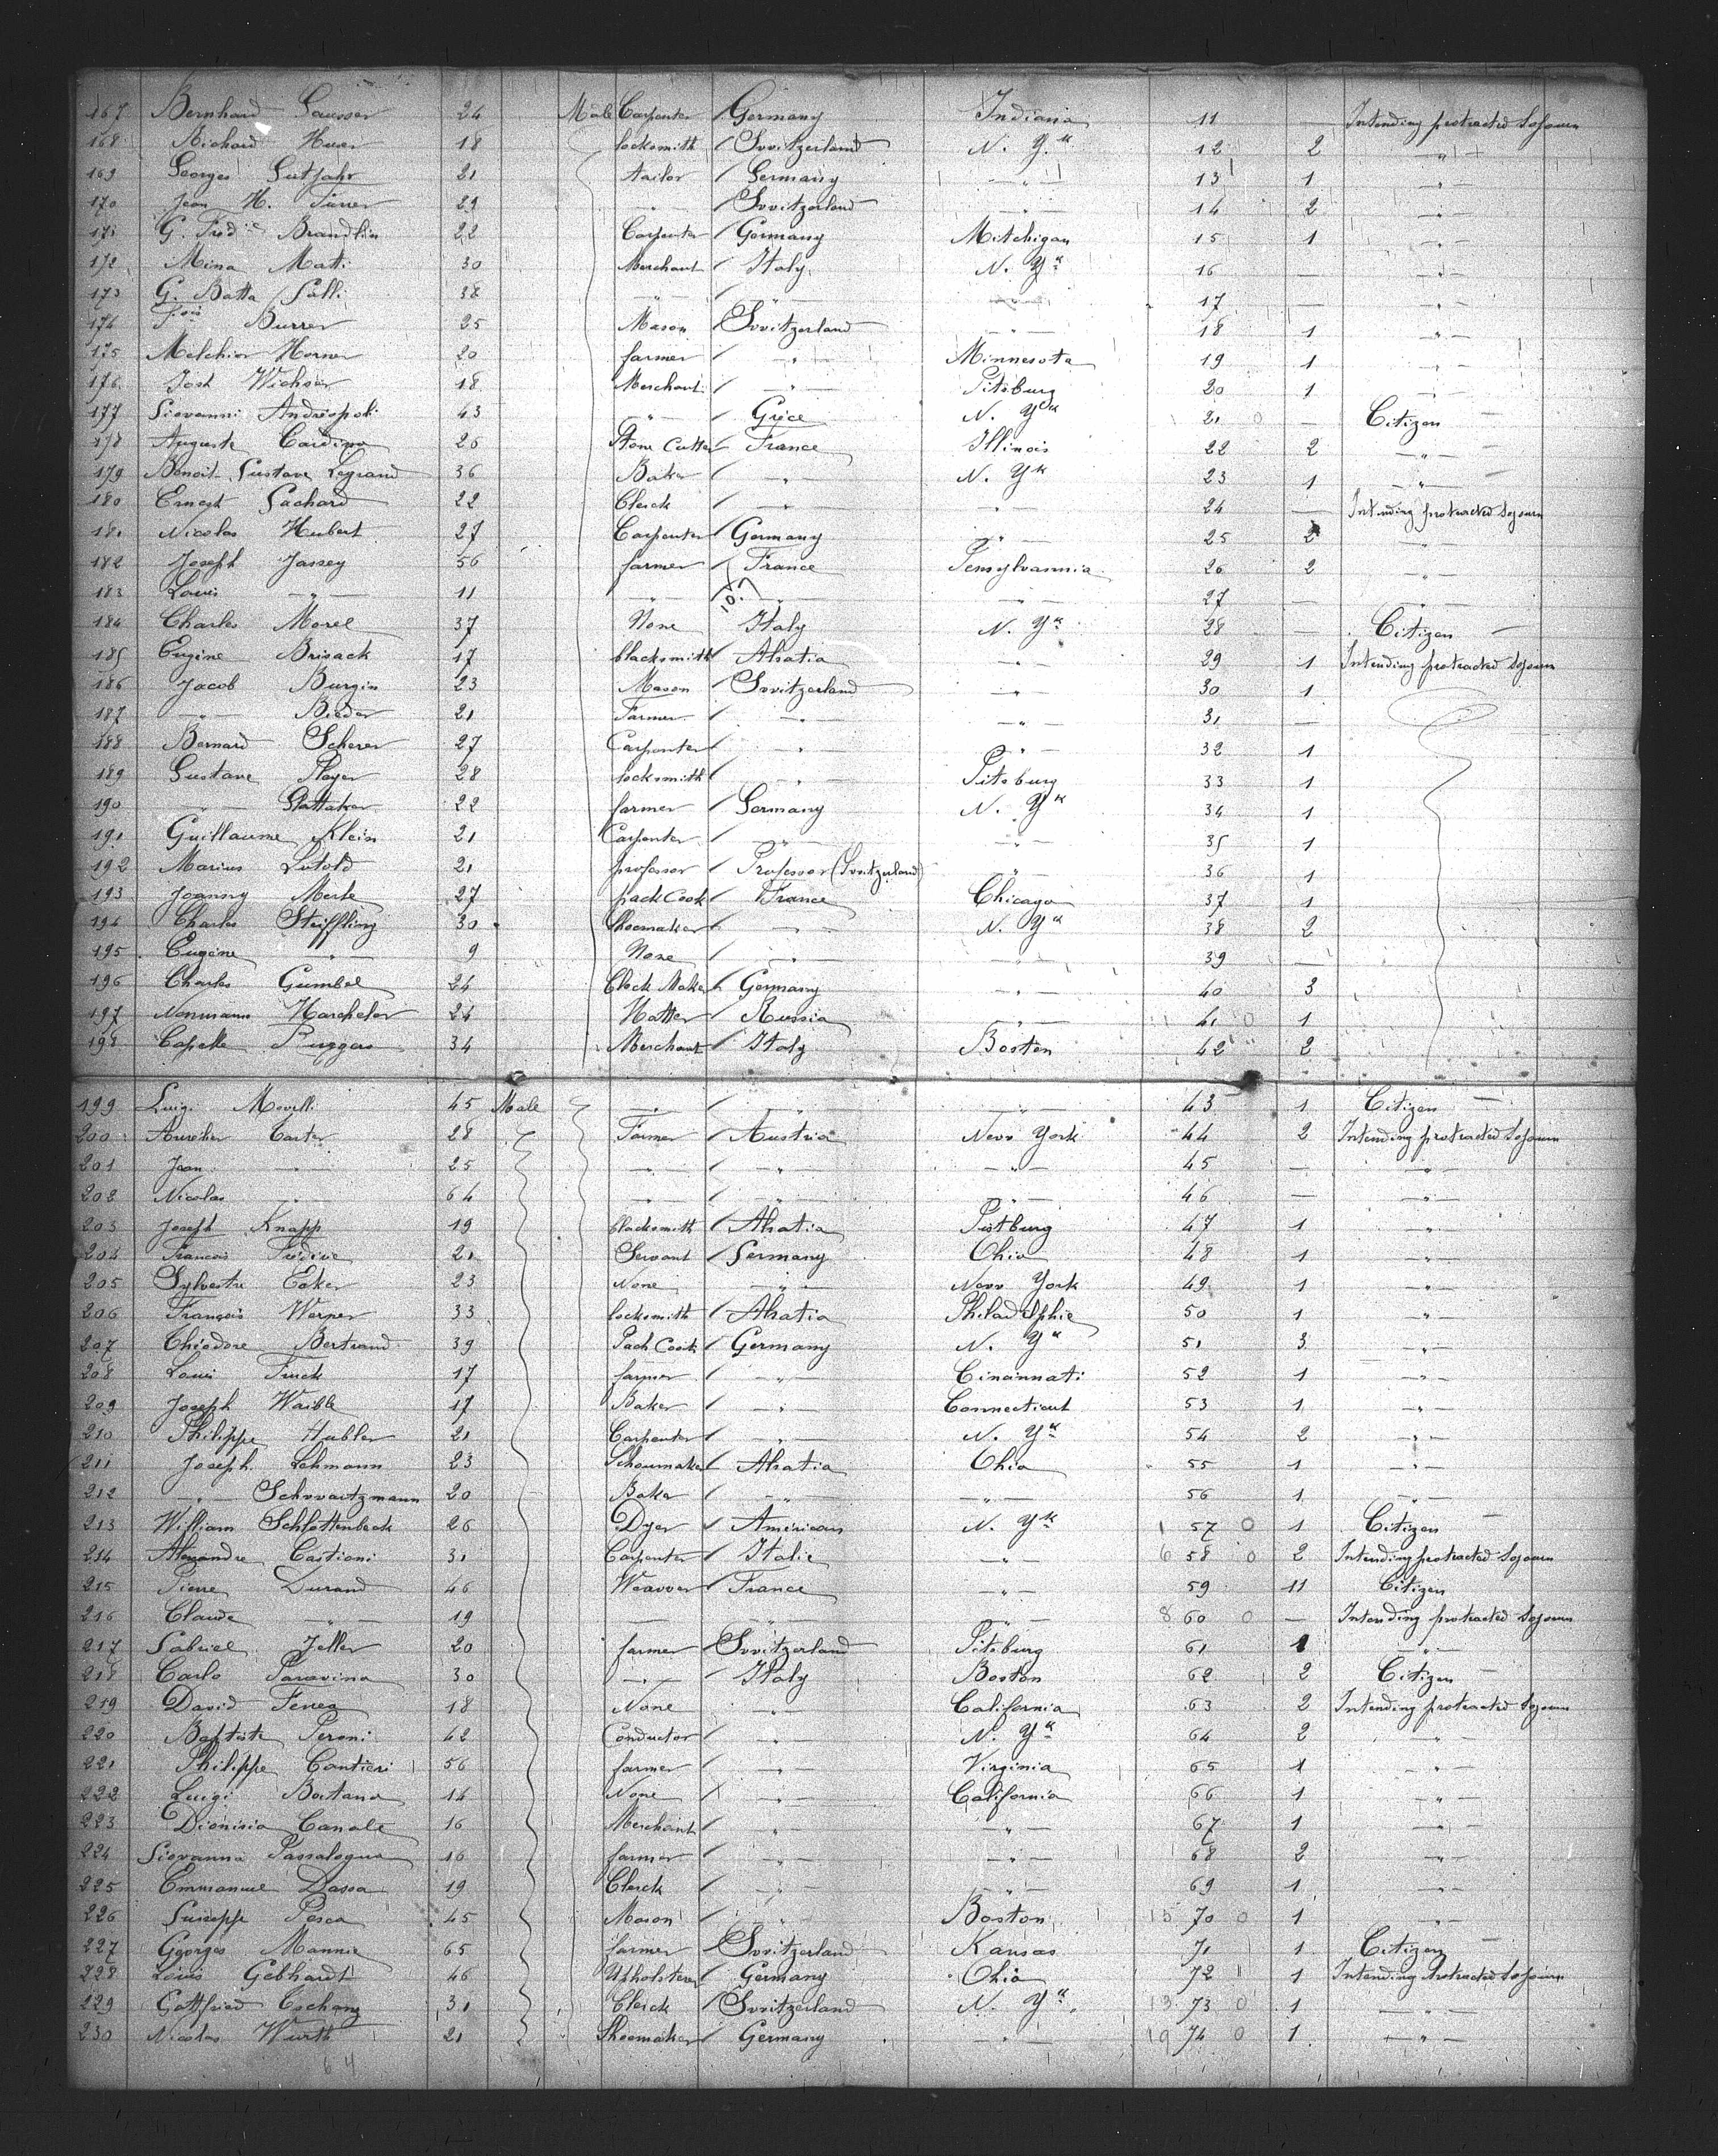 167 Bernhard Gausser 24 Male Carpenter Germany Indiana 11 — Intending protracted Sojourn
168 Richard Huer 18 locksmith Switzerland N. Yk 12 2 — " —
169 Georges Gutjahr 21 tailor Germany — " — 13 1 — " —
170 Jean H. Fürrer 29 — " — Switzerland — " — 14 2 — " —
171 G. Fred Brandlin 22 Carpenter Germany Mitchigan 15 1 — " —
172 Mina Matti 30 Merchant Italy N. Yk 16 — — " —
173 G. Batta Galli 38 — " — — " — — " — 17 — "
174 Fois Burrer 25 Mason Switzerland — " — 18 1 "
175 Melchior Horner 20 farmer — " — Minnesota 19 1 — " —
176 Jost Wichser 18 Merchant — " — Pitsburg 20 1 — " —
177 Giovanni Andreopoli 43 — " — Grèce N. Yk 21 0 — Citizen
178 Auguste Cardina 26 Stone Cutter France Illinois 22 2 — " —
179 Benoit Gustave Legrand 36 Baker — " — N. Yk 23 1 — " —
180 Ernest Gachard 22 Clerck — " — — " — 24 — Intending protracted Sojourn
181 Nicolas Hubert 27 Carpenter Germany — " — 25 2 — " —
182 Joseph Jassey 56 farmer France Pensylvannia 26 2 — " —
183 Louis — " — 11 — " — 10. — " — — " — 27 — — " —
184 Charles Morel 37 None Italy N. Yk 28 — Citizen —
185 Eugène Brisack 17 blacksmith Alsatia — " — 29 1 Intending protracted Sojourn
186 Jacob Burgin 23 Mason Switzerland — " — 30 1
187 — " — Bieder 21 Farmer — " — — " — 31 —
188 Bernard Scherer 27 Carpenter — " — — " — 32 1
189 Gustave Player 28 locksmith — " — Pitsburg 33 1
190 — " — Plattaker 22 farmer Germany N. Yk 34 1
191 Guillaume Klein 21 Carpenter — " — — " — 35 1
192 Marius Lutold 21 professor Professor (Switzerland) — " — 36 1
193 Joanny Merle 27 pack Cook France Chicago 37 1
194 Charles Steiffling 30 Shoemaker — " — N. Yk 38 2
195 Eugène — " — 9 None — " — — " — 39 —
196 Charles Gumbel 24 Clock Maker Germany — " — 40 3
197 Nonmann Harcheler 24 Hatter Russia — " — 41 0 1
198 Capelle Puggero 34 Merchant Italy Boston 42 2
199 Luigi Movelli 45 Male — " — — " — — " — 43 1 Citizen —
200 Aurelier Carter 28 Farmer Austria New York 44 2 Intending protracted Sojourn
201 Jean — " — 25 — " — — " — — " — 45 — — " —
202 Nicolas — " — 64 — " — — " — — " — 46 — — " —
203 Joseph Knapp 19 blacksmith Alsatia Pistburg 47 1 — " —
204 Francois 21 Servant Germany Ohio 48 1 — " —
205 Sylvestre Ecker 23 None — " — New York 49 1 — " —
206 François Werner 33 locksmith Alsatia Philadelphie 50 1 — " —
207 Théodore Bertrand 39 Pack Cook Germany N. Yk 51 3 — " —
208 Louis Finck 17 farmer — " — Cinannati 52 1 — " —
209 Joseph Waible 17 Baker — " — Connecticut 53 1 — " —
210 Philippe Habler 21 Carpenter — " — N. Yk 54 2 — " —
211 Joseph Lehmann 23 Schoumaker Alsatia Ohio 55 1 — " —
212 — " — Schwartzmann 20 Baker — " — — " — 56 1 — " —
213 William Schlottenbeck 26 Dyer Américan N. Yk 1 57 0 1 Citizen —
214 Alexandre Castioni 31 Carpenter Italie — " — 6 58 0 2 Intending protracted Sojourn
215 Pierre Durand 46 Weavver France — " — 59 11 Citizen
216 Claude — " — 19 — " — — " — — " — 8 60 0 — Intending protracted Sojourn
217 Gabriel Jetter 20 farmer Switzerland Pitsburg 61 1 — " —
218 Carlo Paravina 30 — " — Italy Boston 62 2 Citizen —
219 David Fenea 18 None — " — California 63 2 Intending protracted Sojourn
220 Baptiste Peroni 42 Conductor — " — N. Yk 64 2 — " —
221 Philippe Contieri 56 farmer — " — Virginia 65 1 — " —
222 Luigi Botana 14 None — " — California 66 1 — " —
223 Dionisia Canale 16 Merchant — " — — " — 67 1 — " —
224 Giovanna Passalogua 16 farmer — " — — " — 68 2 — " —
225 Emmanuel Dassa 19 Clerck — " — — " — 69 1 — " —
226 Guiseppe Pesca 45 Mason — " — Boston 15 70 0 1 — " —
227 Georges Mannie 65 farmer Switzerland Kansas 71 1 Citizen
228 Louis Gebhardt 46 Upholsterer Germany Ohio 72 1 Intending protracted Sojourn
229 Gottfried Tschanz 31 Clerck Switzerland N. Yk. 13 73 0 1 — " —
230 Nicolas Wurth 21 Shoemaker Germany — " — 19 74 0 1 — " —
64